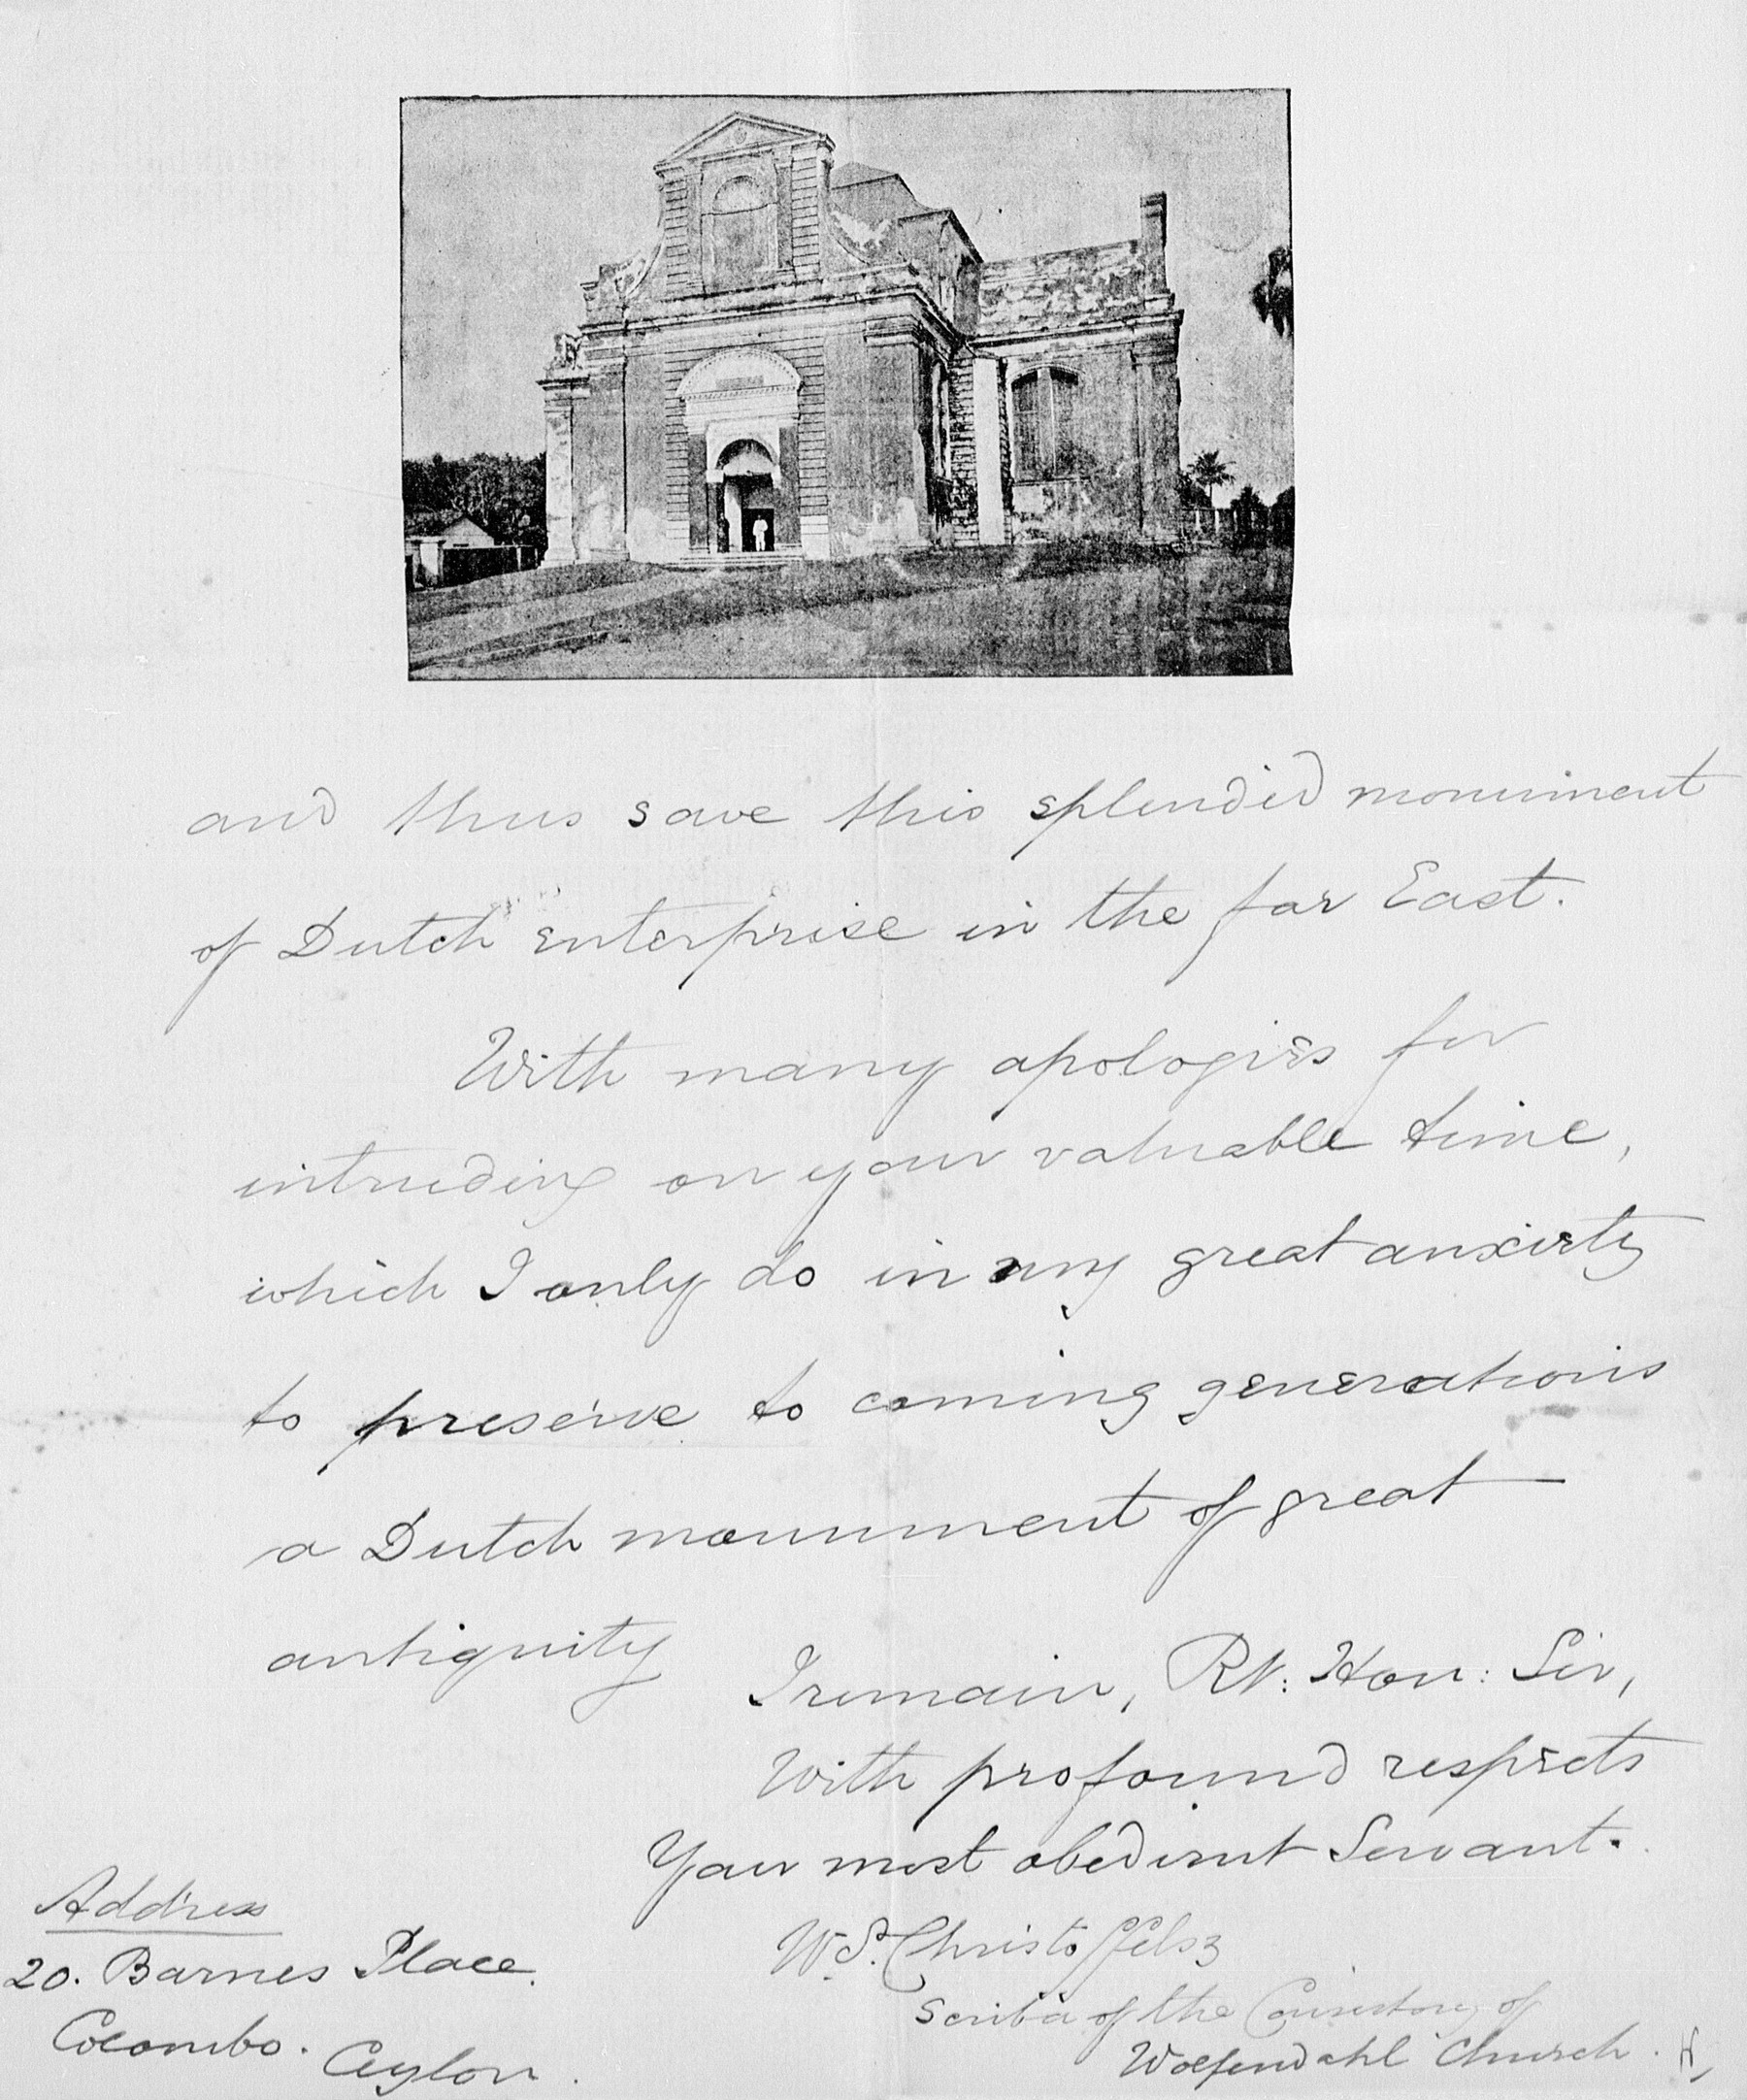 and thus save this splendid monument
of Dutch enterprise in the far East.
With many apologies for
intruding on your valuable time,
which I only do in my great anxiety
to preserve to coming generations
a Dutch monument of great
antiquity
I remain, Rt: Hon: Sir,
With profound respects
Your most obedient Servant.
W. S. Christoffelsz
Scriba of the Consistory of
Wolfendahl Church.
Address
20. Barnes Place.
Colombo. Ceylon.